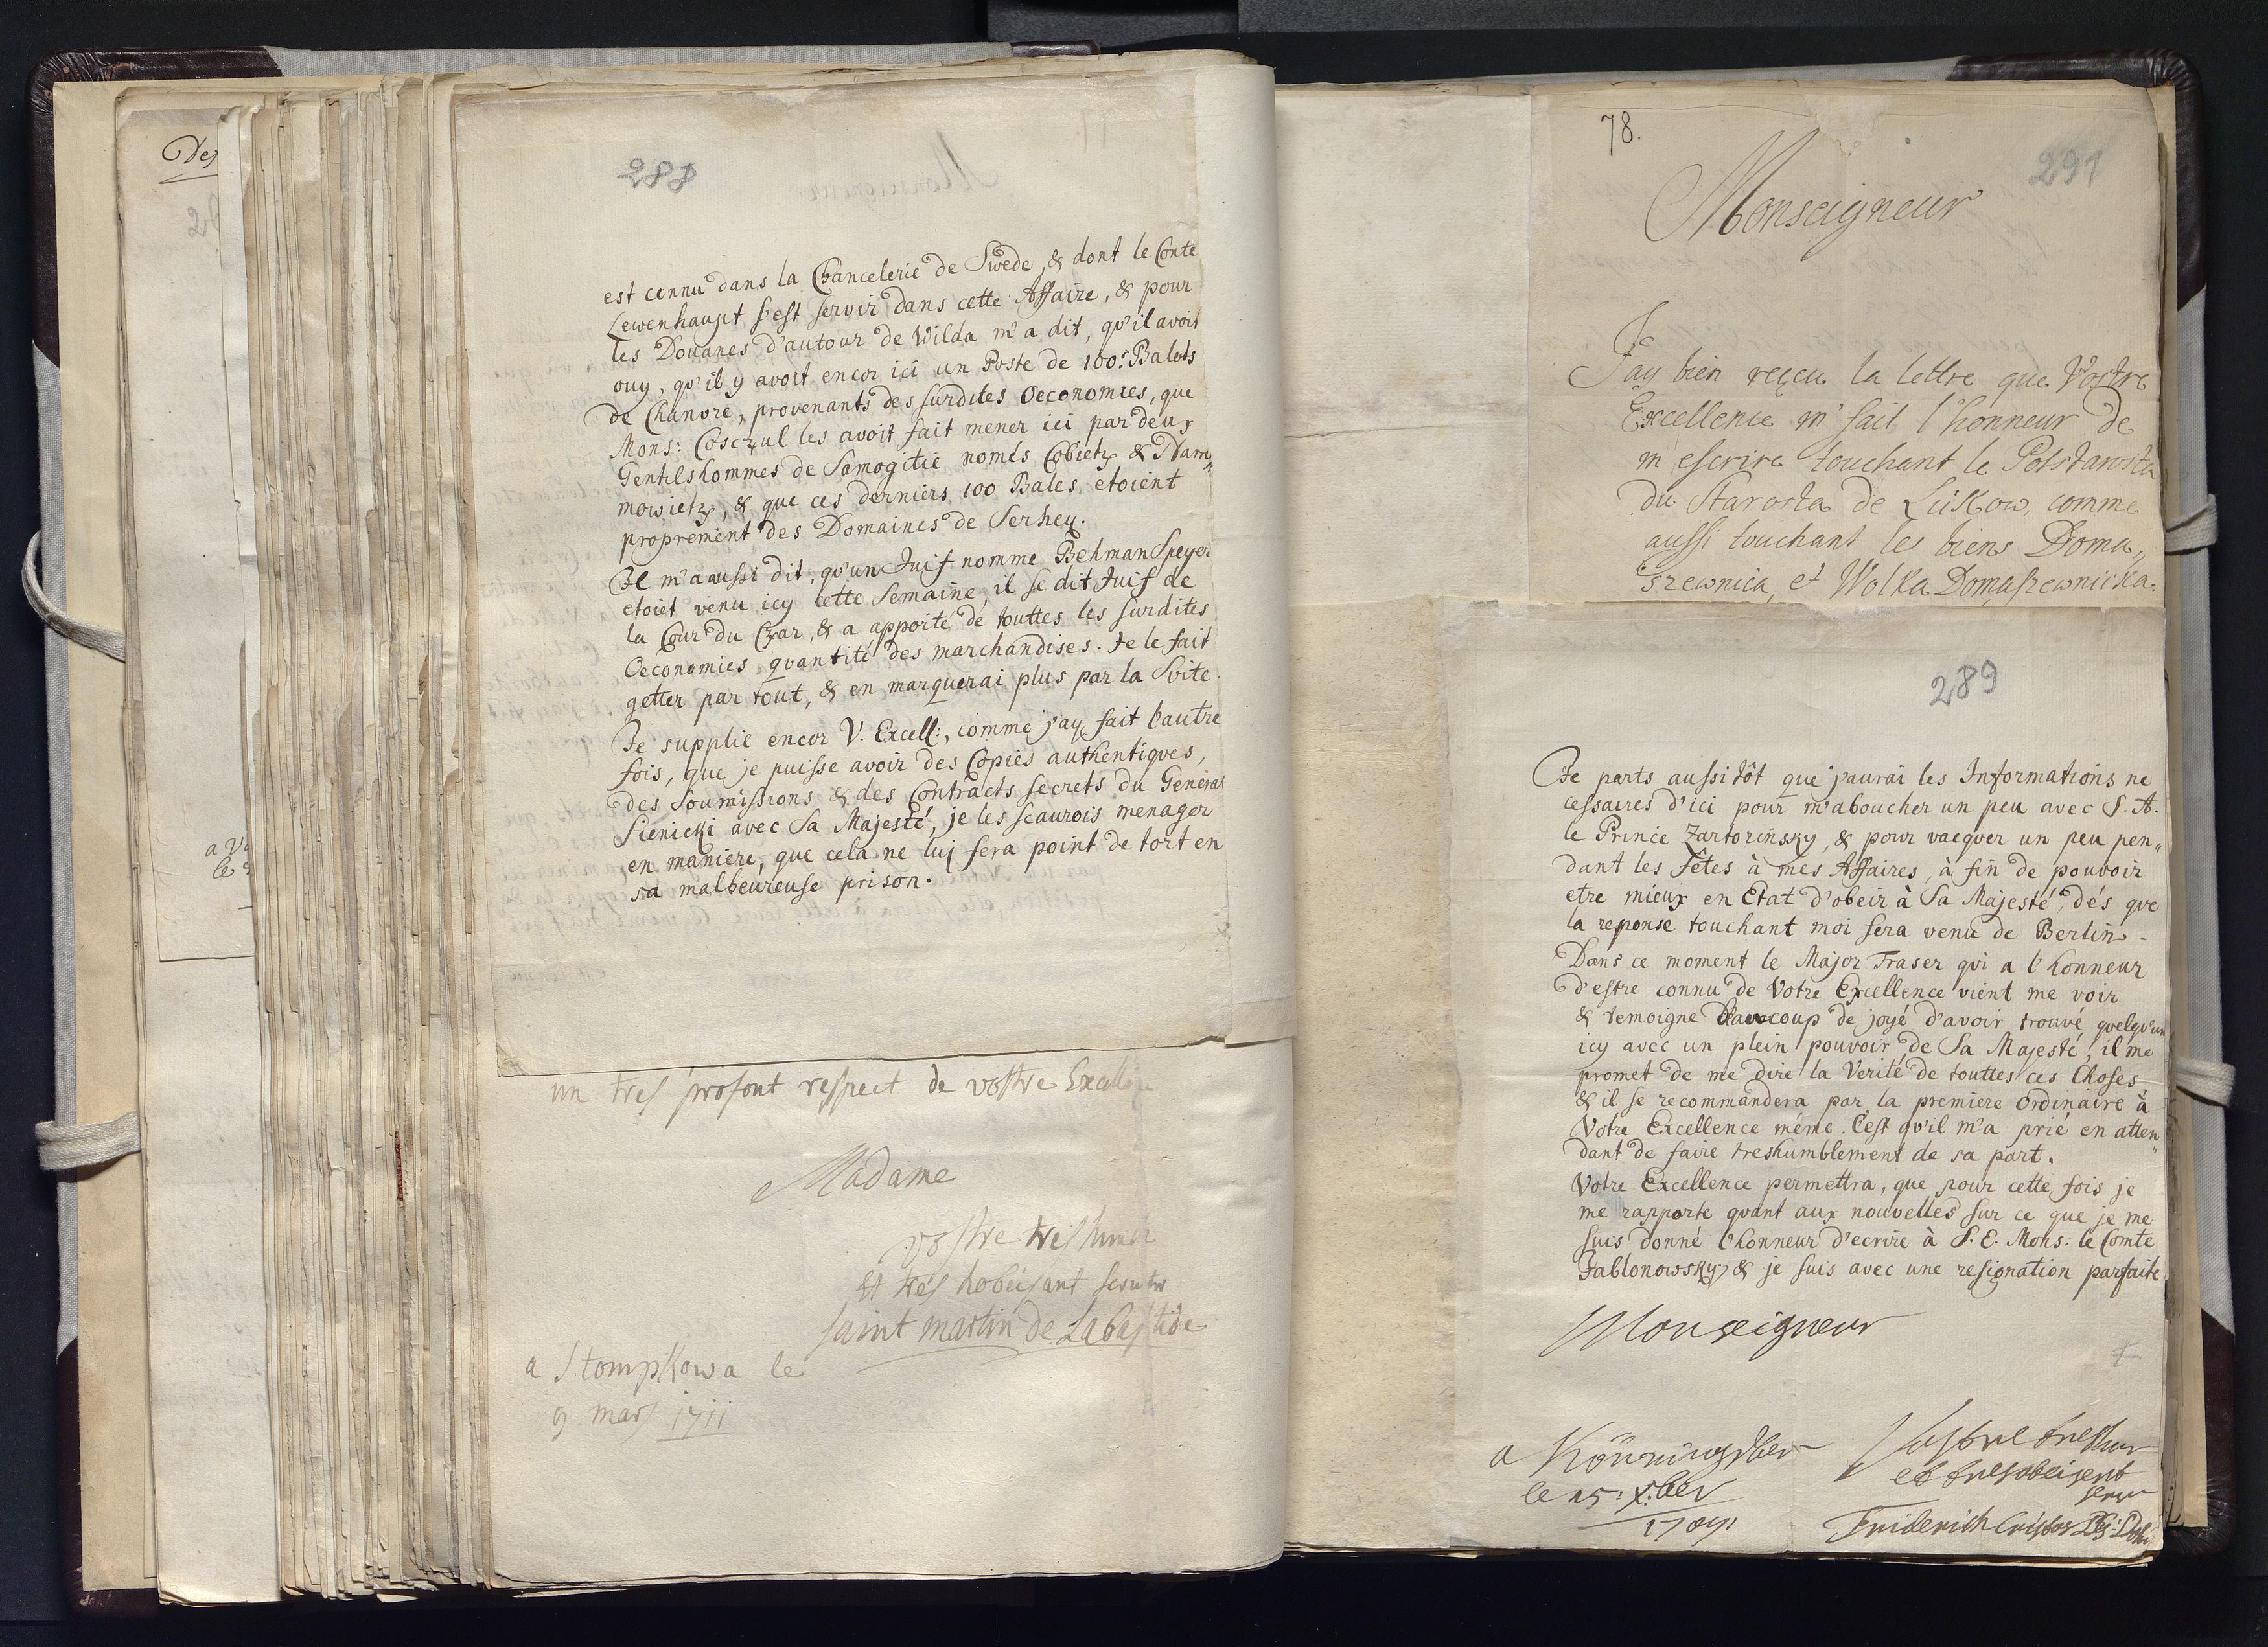 Des
288
est connu dans la Chancelerie de Swede, & dont le Conte
Lewenhaupt s'est servir dans cette Affaire, & pour
les Douanes d'autour de Wilda m'a dit, qu'il avoit
ouy, qu'il y avoit encor ici un Poste de 100: Balots
de Chanvre, provenants des surdites Oeconomies, que
Mons: Cosczul les avoit fait mener ici par deux
Gentilshommes de Samogitie només Cobietz & Dam„
mowietz, & que ces derniers 100 Bales etoient
proprement des Domaines de Serhey.
Il m'a aussi dit, qu'un Juif nomme Behman Speyer
etoiet venu icy cette Semaine, il se dit Juif de
la Cour du Czar, & a apporté de touttes les surdites
Oeconomies quantité des marchandises. Je le fait
getter par tout, & en marquerai plus par la Svite.
Je supplie encor V. Excell:, comme j'ay fait l'autre
fois, que je puisse avoir des Copies authentiques,
des Soumissions & des Contracts secrets du General
Sienicki avec Sa Majesté, je les scaurois menager
en maniere, que cela ne luj fera point de tort en
sa malheureuse prison.
un tres profont respect de vostre Excellence
Madame
vostre tres humble
et tres hobeisant
saint martin de Labastide
a Stompkowa le
9 mars 1711
78.
291
Monseigneur
J'ay bien reçeu la lettre que Vostre
Excellence m' fait l'honneur de
m'escrire touchant le Potstarosta
du Starosta de Lukow, comme
aussi touchant les biens Doma„
szewnica, et Wolka Domaszewnicka.
289
Je parts aussitôt que j'aurai les Informations ne
cessaires d'ici pour m'aboucher un peu avec S. A.
le Prince Zartorinsky, & pour vacquer un peu pen„
dant les Fêtes à mes Affaires, à fin de pouvoir
etre mieux en Etat d'obeir à Sa Majesté, dés que
la reponse touchant moi sera venu de Berlin -
Dans ce moment le Major Fraser qui a l'honneur
d'estre connu de Votre Excellence vient me voir
& temoigne beaucoup de joye d'avoir trouvé quelqu'un
icy avec un plein pouvoir de Sa Majesté, il me
promet de me dire la Verité de touttes ces Choses
& il se recommandera par la premiere Ordinaire à
Votre Excellence même. C'est qu'il m'a prié en atten„
dant de faire treshumblement de sa part.
Votre Excellence permettra, que pour cette fois je
me rapporte quant aux nouvelles sur ce que je me
suis donné l'honneur d'ecrire à S. E. Mons. le Comte
Jablonowsky, & je suis avec une resignation parfaite
Monseigneur
a
le 15: X:ber
Vostre
et tresobeisent
serv
Friderich